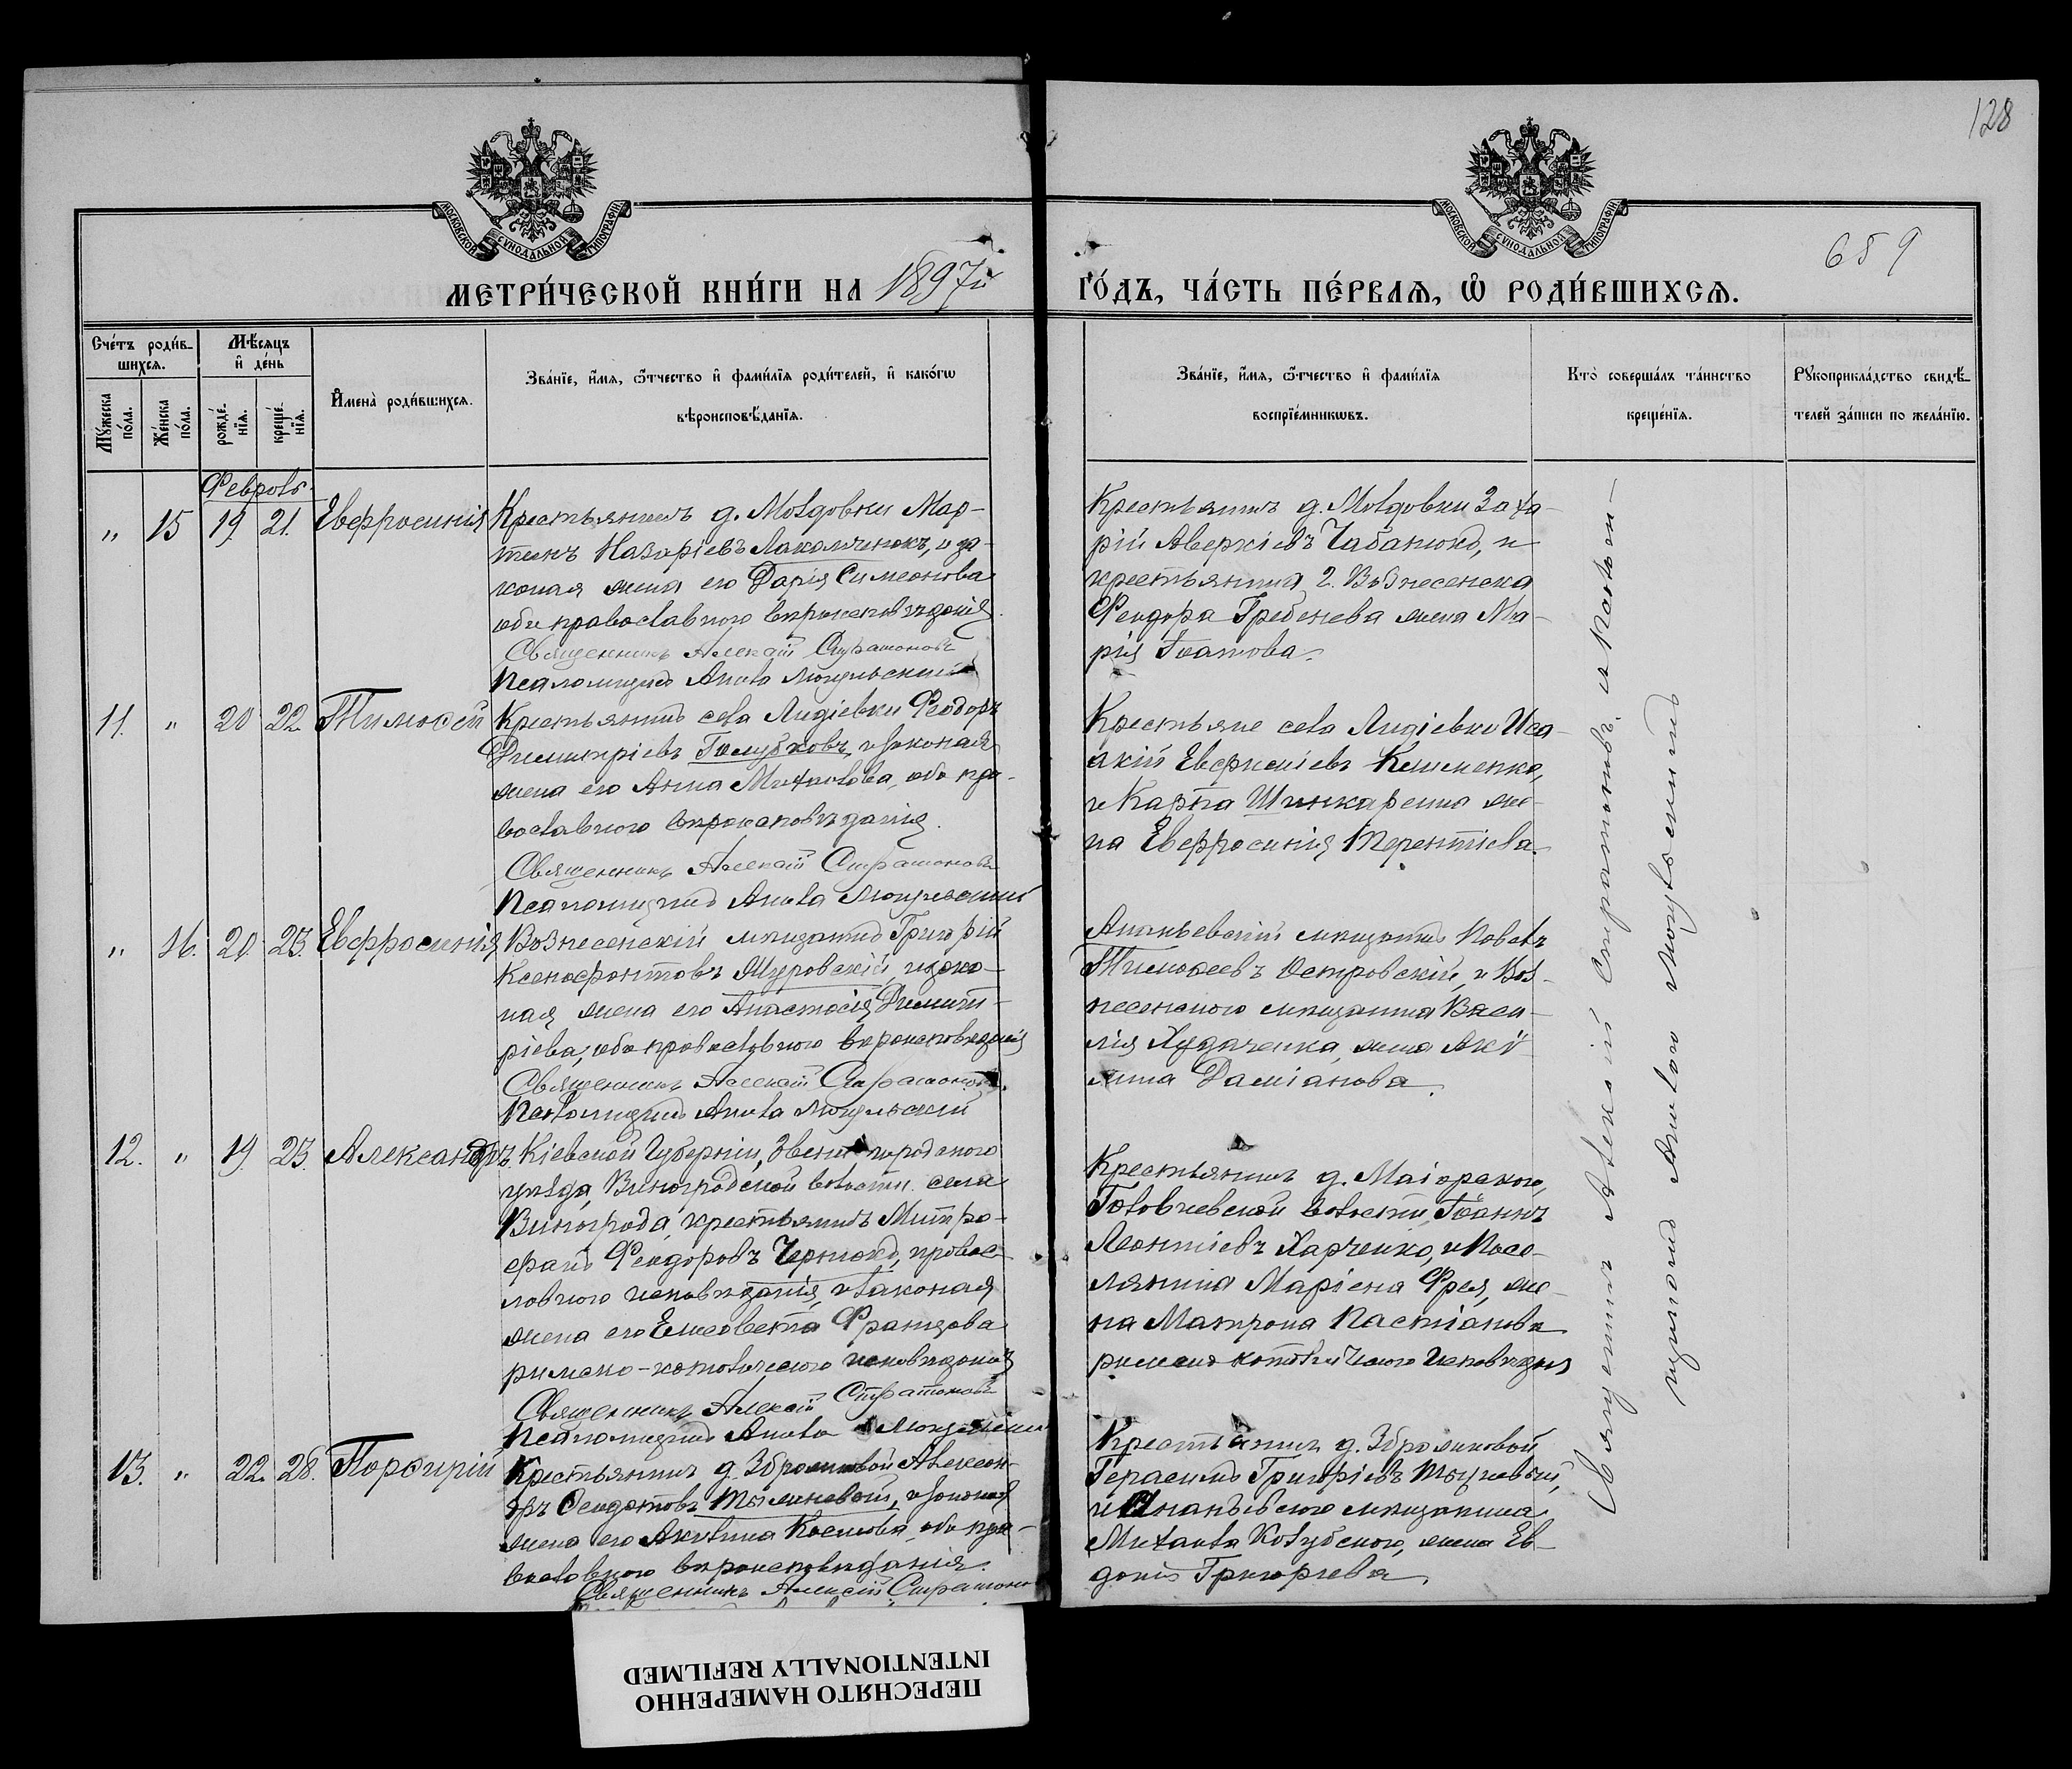 128
МОСКОВСКОЙ СѴНОДАЛЬНОЙ ТИПОГРАФІИ
МОСКОВСКОЙ СѴНОДАЛЬНОЙ ТИПОГРАФІИ
659
МЕТРИ́ЧЕСКОЙ КНИ́ГИ НА 1897й ГО́ДЪ, ЧА́СТЬ ПЕ́РВАѦ, Ѡ҆ РОДИ́ВШИХСѦ.
Сче́тъ роди́в-
шихсѧ.
Мꙋ́жеска по́ла.
Же́нска по́ла.
Мѣ́сѧцъ
и҆ де́нь
рожде́нїѧ.
креще́нїѧ.
И҆мена̀ роди́вшихсѧ.
Зва́нїе, и҆́мѧ, ѻ҆́тчество и҆ фами́лїѧ роди́телей, и҆ како́гѡ
вѣроисповѣ́данїѧ.
Зва́нїе, и҆́мѧ, ѻ҆́тчество и҆ фами́лїѧ
воспрїе́мникѡвъ.
Кто̀ соверша́лъ та́инство
креще́нїѧ.
Рꙋкоприкла́дство свидѣ́-
телей за́писи по жела́нїю.
Февраль.
" 15 19 21. Евфросинія
Крестьянинъ д. Молдовки Мар-
тинъ Назаріевъ и за-
коная жена его Дарія Симеонова
оби православного вѣроисповѣданія.
Священникъ Алексій Стратоновъ
Псаломщикъ
Крестьянинъ д. Молдовки Заха-
рій Аверкіевъ Чабанюкъ, и
крестьянина г. Вознесенска
Феодора Гребенева жена Ма-
рія Іоанова.
11. " 20 22 Тимоѳей
Крестьянинъ села Лидіевки Феодоръ
Димитріевъ Голубковъ, и законая
жена его Анна Михаилова, оба пра-
вославного вѣроисповѣданія.
Священникъ Алексій Стратоновъ
Псаломщикъ
Крестьяне села Лидіевки Иса-
акій Евфиміевъ Клименко,
и Карпа Шинкаренка же-
на Евфросинія Терентіева.
" 16. 20. 23. Евфросинія
Вознесенскій мѣщанинъ Григорій
Ксенофонтовъ Журовскій и зако-
ная жена его Анастасія Димит-
ріева, оба православного вѣроисповѣданія
Священникъ Алексій Стратоновъ.
Псаломщикъ
Ананьевскій мѣщанинъ Павелъ
Тимоѳеевъ Островскій, и Воз-
несенского мѣщанина Васи-
лія Худаченка, жена Аку-
лина Даміанова.
12. " 19. 23. Александръ
Кіевской Губерніи, Звенигородского
уѣзда, Виноградской волости села
Винограда, крестьянинъ Митро-
фанъ Феодоровъ Чернюкъ, правос-
лавного исповѣданія, и законая
жена его Елисавета Францова
римско-католического исповѣданія
Священникъ Алексій Стратоновъ
Псаломщикъ
Крестьянинъ д. Маіорского,
Головлевской волости Іоаннъ
Леонтіевъ Харченко, и Посе-
лянина Маріена Фрея, же-
на Матрона
римско католического исповѣданія
13. " 22. 28. Порфирій
Крестьянинъ д. Збрашковой Алексан-
дръ Феодотовъ и законая
жена его Акилина Космова, оба пра-
вославного вѣроисповѣданія.
Священникъ Алексій Стратоновъ
Крестьянинъ д. Збрашковой
Герасимъ Григоріевъ
и Ананьевского мѣщанина
Михаила Колубского, жена Ев-
докія Григорьева.
Священникъ Алексій Стратоновъ и псалом-
щикомъ
ПЕРЕСНЯТО НАМЕРЕННО
INTENTIONALLY REFILMED